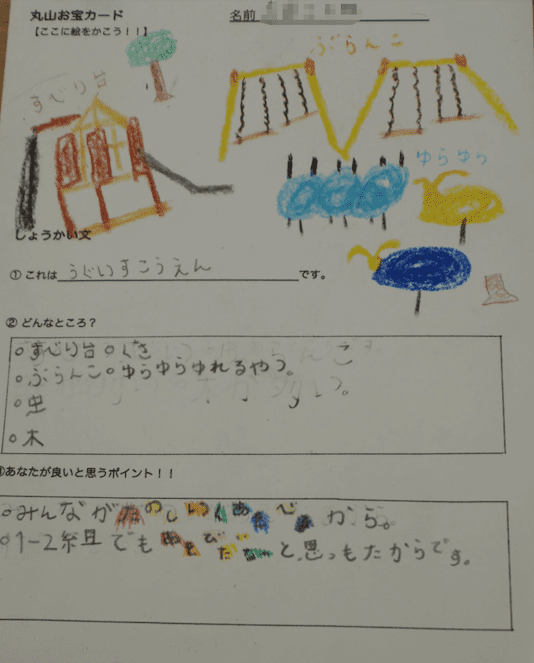 丸山お宝カード
名前
【ここに絵をかこう！！】
ぶらんこ
すべり台
ゆらゆら
しょうかい文
① これは うぐいすこうえん です。
② どんなところ？
○すべり台 ○くさ
○ぶらんこ○ゆらゆらゆれるやつ。
○虫
○木
あなたが良いと思うポイント！！
○みんながたのしくあそべるから。
○1-2組でも と思ったからです。